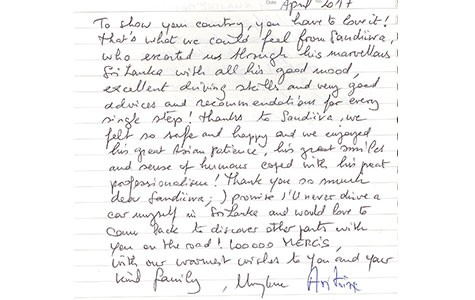 April 2017
To show your country, you have to love it!
That's what we could feel from Sandiiva,
who escorted us through his marvellous
Sri Lanka with all his good mood,
excellent driving skills and very good
advices and recommendations for every
single step! Thanks to Sandiiva, we
felt so safe and happy and we enjoyed
his great Asian patience, his great smiles
and sense of humour coped with his great
professionalism! Thank you so much
dear Sandiiva; I promise I'll never drive a
car myself in Sri Lanka and would love to
come back to discover other parts with
you on the road! 100000 MERCIS,
with our warmest wishes to you and your
kind family,